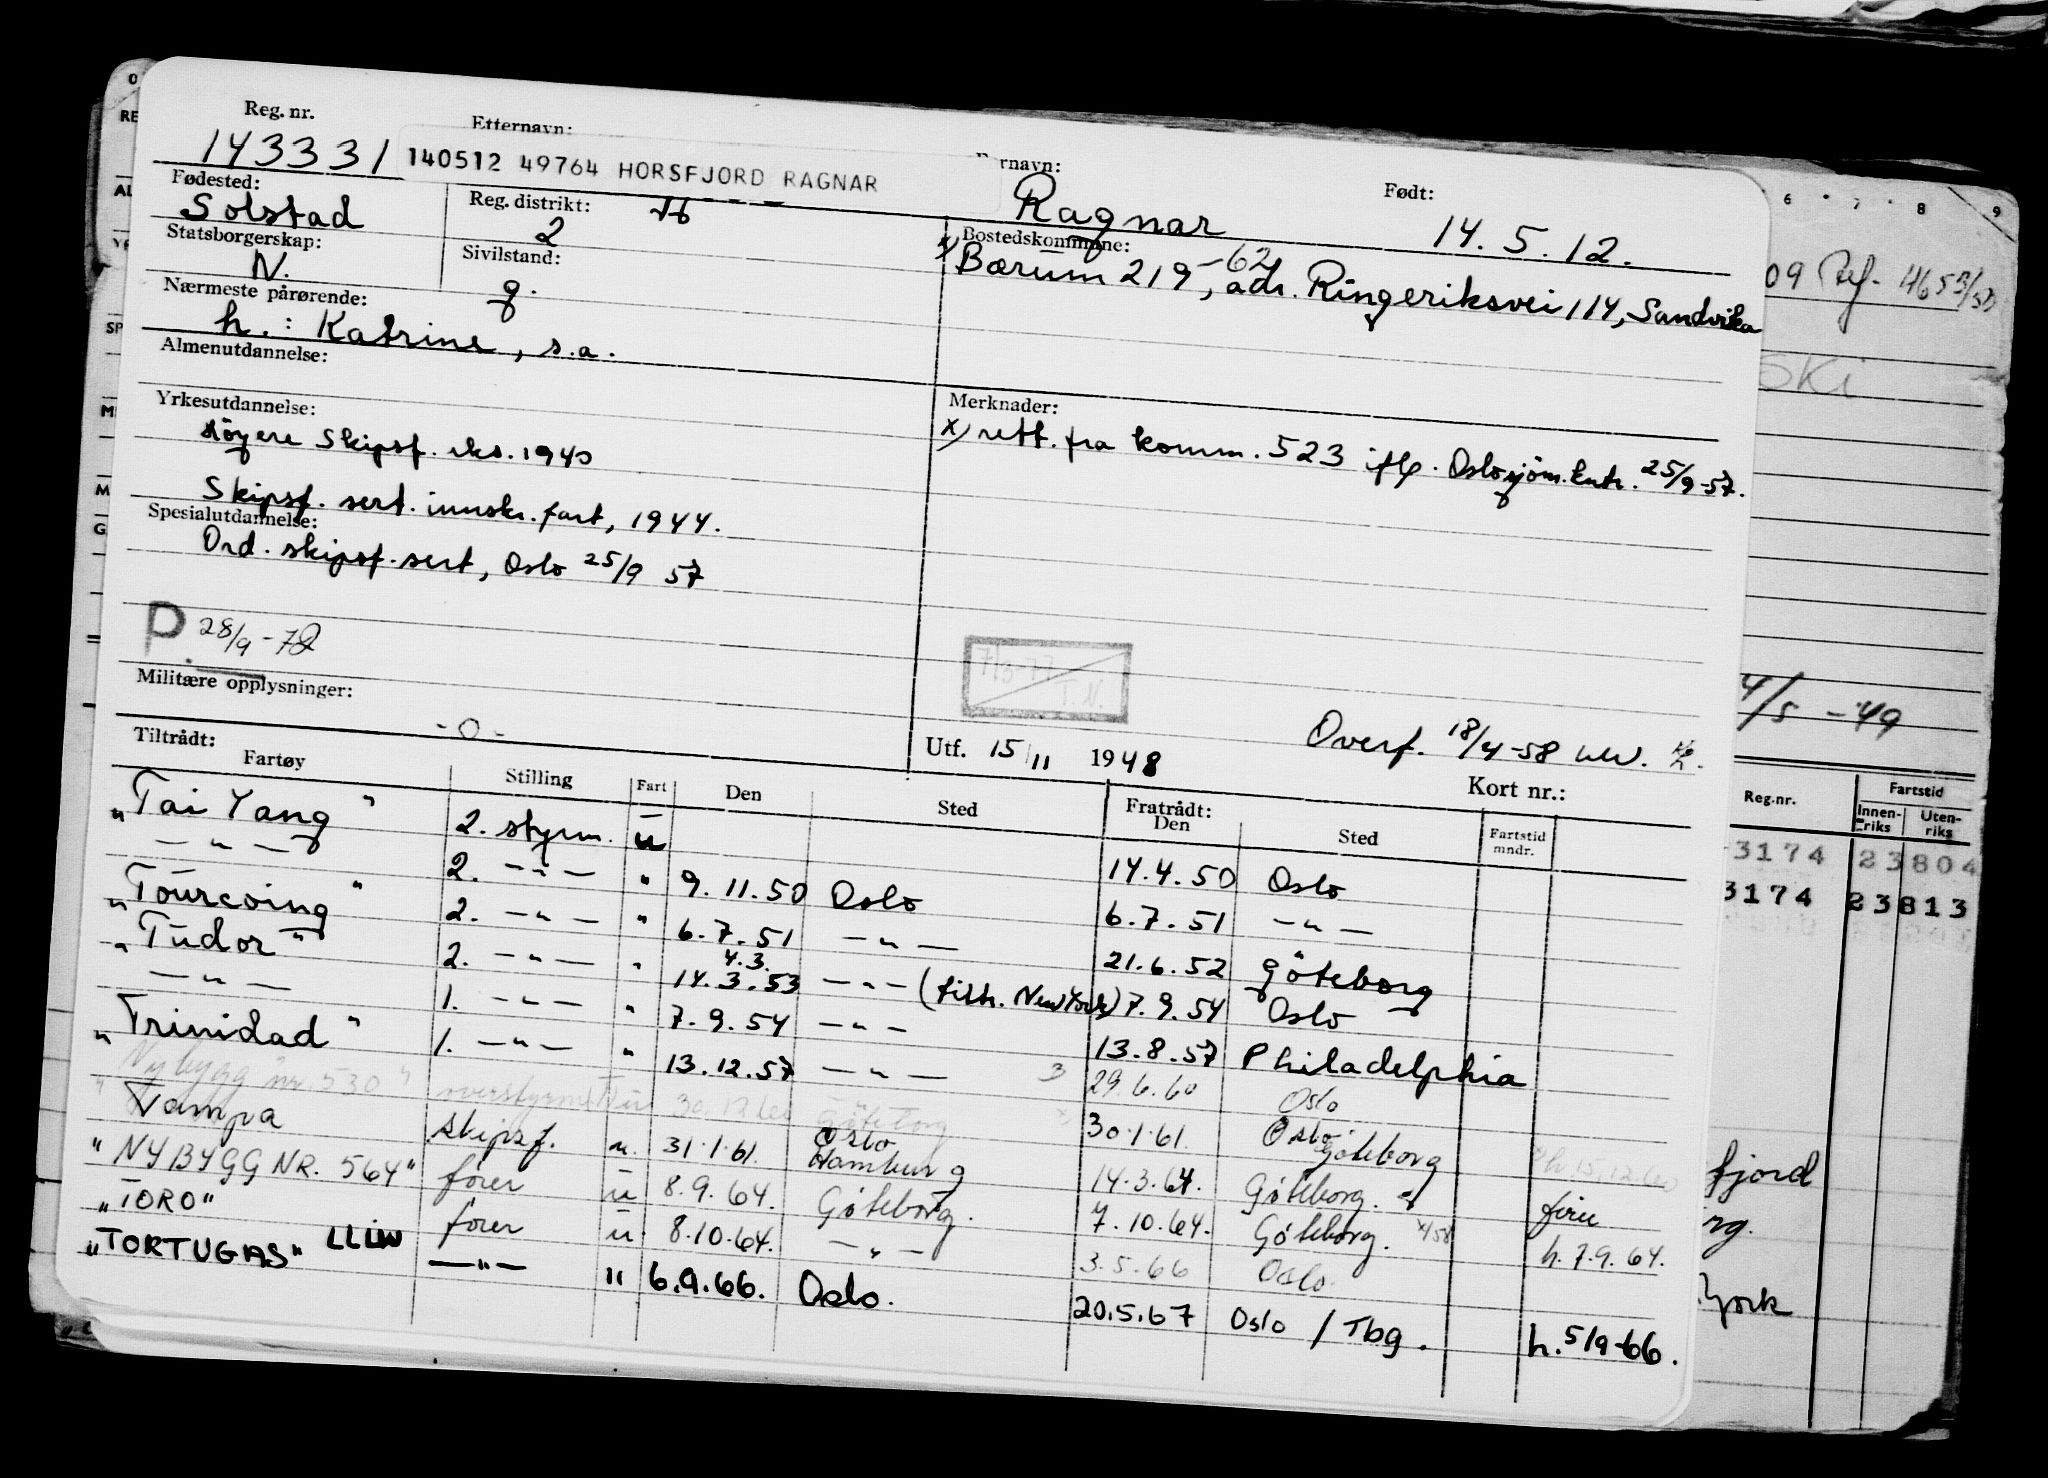 Reg. nr. Etternavn: Fornavn: Født:
143331 140512 49764 HORSFJORD RAGNAR Ragnar 14. 5. 12.
Fødested: Reg. distrikt: Bostedskommune:
Solstad 2 x) Bærum 219, -62 adr. Ringeriksvei 114, Sandvika
Statsborgerskap: Sivilstand:
N. g.
Nærmeste pårørende:
h.: Katrine, s.a.
Almenutdannelse:
Yrkesutdannelse: Merknader:
Høyere Skipsf. eks. 1940 x) rett. fra komm. 523 ifl. Oslo sjøm.kntr. 25/9-57.
Skipsf. sert. innskr. fart, 1944.
Spesialutdannelse:
Ord. skipsf. sert, Oslo 25/9 57
P 28/9-72
7/3-77
T.N.
Militære opplysninger:
-o-
Utf. 15/11 1948 Overf. 18/4-58
Tiltrådt: Fratrådt: Kort nr.:
Fartøy Stilling Fart Den Sted Den Sted Fartstid mndr.
"Tai Yang" 2. styrm. u 14.4.50 Oslo
— " — 2. — " — " 9.11.50 Oslo 6.7.51 — " —
"Tourcoing" 2. — " — " 6.7.51 — " — 21.6.52 Göteborg
"Tudor" 2. — " — " 4.3. 14.3.53 — " — (tiltr. New York) 7.9.54 Oslo
— " — 1. — " — " 7.9.54 — " — 13.8.57 Philadelphia
"Trinidad" 1. — " — " 13.12.57 — " — 29.6.60 Oslo
"Nybygg nr. 530" overstyrm. u 30.12.60 Göteborg 30.1.61 Oslo Göteborg h. 15.12.60
Tampa skipsf. u. 31.1.61. Oslo Hamburg 14.3.64. Göteborg.
"NYBYGG NR. 564" fører u 8.9.64. Göteborg. 7.10.64. Göteborg. fører h. 7.9.64.
"TORO" fører u 8.10.64. — " — 3.5.66 Oslo
"TORTUGAS" LLIW — " — " 6.9.66. Oslo. 20.5.67 Oslo / Tbg. h. 5/9-66.
6 7 8 9
09 Ref. 4653/50
SKI
4/5 -49
Reg.nr. Fartstid
Innenriks Utenriks
3174 23804
3174 23813
fjord
rg.
York